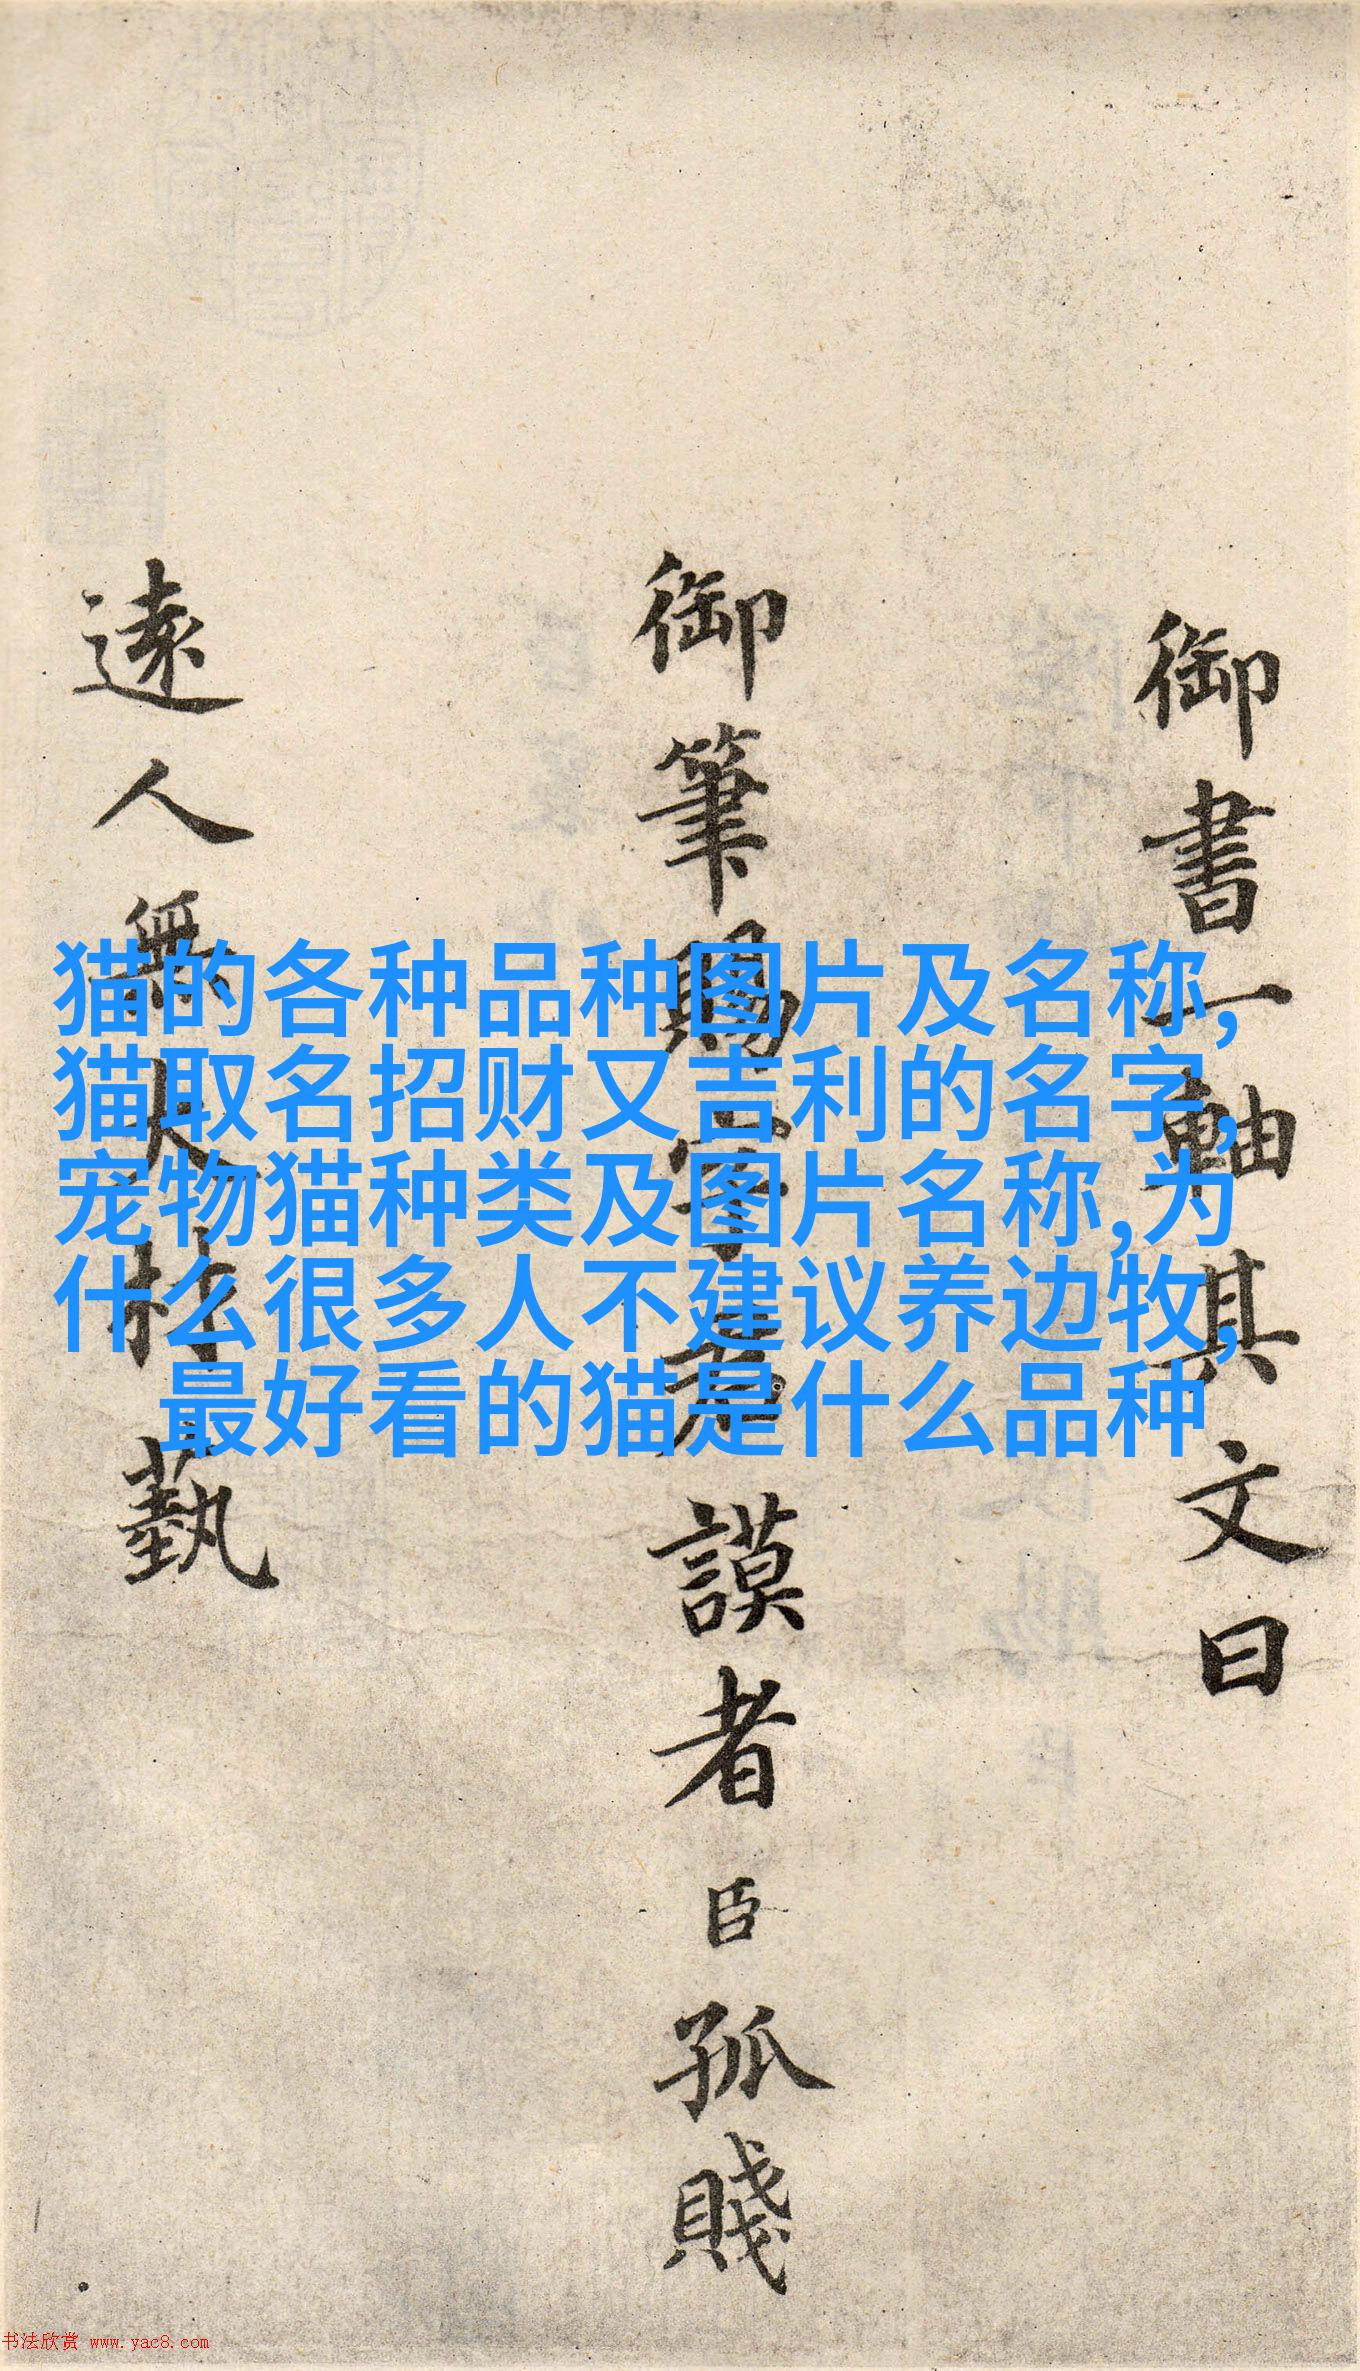 御書一軸其文曰
御筆賜字君謨者臣孤賤
遠人無大材藝
猫的各种品种图片及名称,
猫取名招财又吉利的名字,
宠物猫种类及图片名称,为
什么很多人不建议养边牧,
最好看的猫是什么品种
书法欣赏 www.yac8.com